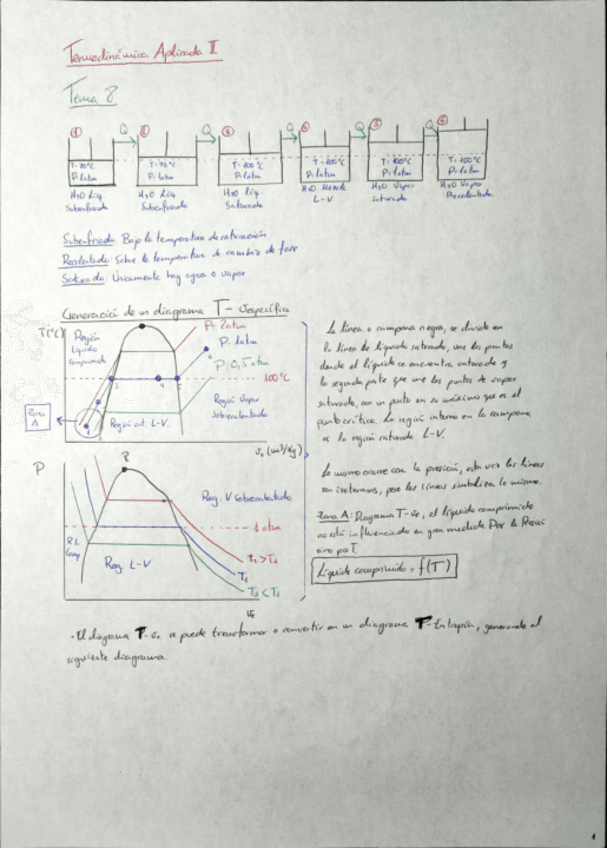 Termodinámica Aplicada II
Tema 8
① Q ② Q ③ Q ④ Q ⑤ Q ⑥
T=20°C
P=1atm
P=1atm
T=100°C
P=1atm
T=100°C
P=1atm
T=100°C
P=1atm
P=1atm
H₂O Líq. Subenfriado
H₂O Líq. Subenfriado
H₂O Líq. Saturado
H₂O Mezcla L-V
H₂O Vapor saturado
H₂O Vapor Recalentado.
Subenfriado: Bajo la temperatura de saturación
Recalentado: Sobre la temperatura de cambio de fase
Saturado: Únicamente hay agua o vapor
Generació de un diagrama T- Vespecífico
T(°C)
Región líquido comprimido
P=2atm
P=1atm
P=0,5atm
100°C
Región Vapor sobrecalentado
Región sat. L-V.
Zona A
(m³/kg)
La línea o campana negra, se divide en
la línea de líquido saturado, une los puntos
donde el líquido se encuentra saturado y
la segunda parte que une los puntos de vapor
saturado, con un punto en su máximo que es el
punto crítico. La región interna en la campana
es la región saturada L-V.
P
Reg. V sobrecalentado
1 atm
R.L Comp
Reg. L-V
Lo mismo ocurre con la presión, esta vez las líneas
son isotermas, pero las líneas simboliza lo mismo.
Zona A: Diagrama T-ve, el líquido comprimido
no está influenciado en gran medida Por la Presión
sino por T.
Líquido comprimido = f(T)
·El diagrama T-ve se puede transformar o convertir en un diagrama T-Entropía, generando el
siguiente diagrama.